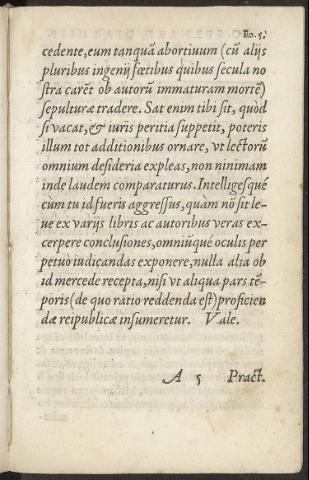 Fo. 5.
cedente, eum tanquã abortiuum (cũ alijs
pluribus ingenij fœtibus quibus secula no
stra carẽt ob autorũ immaturam mortẽ)
sepulturæ tradere. Sat enim tibi sit, quòd
si vacat, & iuris peritia suppetit, poteris
illum tot additionibus ornare, vt lectorũ
omnium desideria expleas, non minimam
inde laudem comparaturus. Intelligesqué
cùm tu id fueris aggressus, quàm nõ sit le-
ue ex varijs libris ac autoribus veras ex-
cerpere conclusiones, omniũqué oculis per
petuo iudicandas exponere, nulla alia ob
id mercede recepta, nisi vt aliqua pars tẽ-
poris (de quo ratio reddenda est) proficien
dæ reipublicæ insumeretur. Vale.
A 5 Pract.